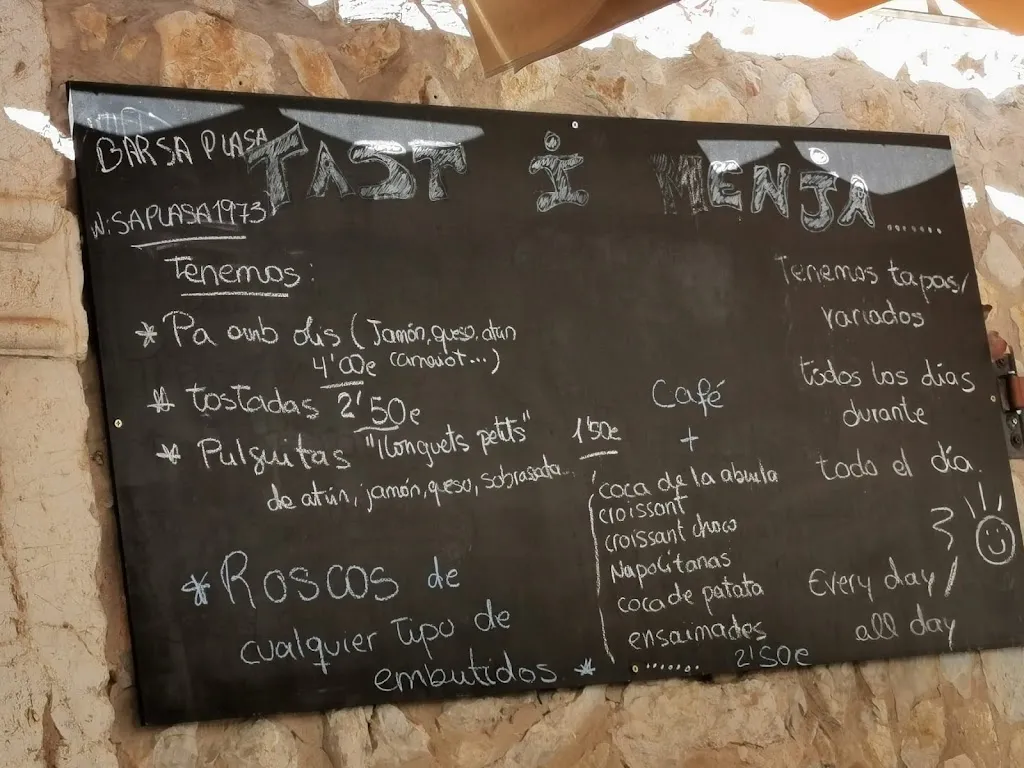 BARSA PLASA
W: SAPLASA1973
TAST i MENJA.......
Tenemos:
* Pa amb olis (Jamón, queso, atún
4'00€ carnavot...)
* Tostadas 2'50€
* Pulguitas "llonguets petits" 1'50€
de atún, jamón, queso, sobrassata...
* Roscos de
cualquier Tipo de
embutidos *
Café
+
coca de la abuela
croissant
croissant choco
Napolitanas
coca de patata
ensaimades
....... 2'50€
Tenemos tapas/
variados
todos los días
durante
todo el día.
Every day/
all day